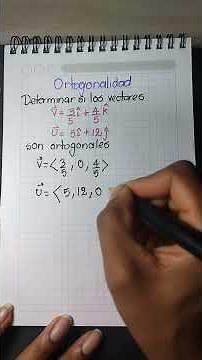 Ortogonalidad
Determinar si los vectores
v⃗ = 3/5 î + 4/5 k̂
u⃗ = 5î + 12ĵ
son ortogonales
v⃗ = ⟨3/5, 0, 4/5⟩
u⃗ = ⟨5, 12, 0